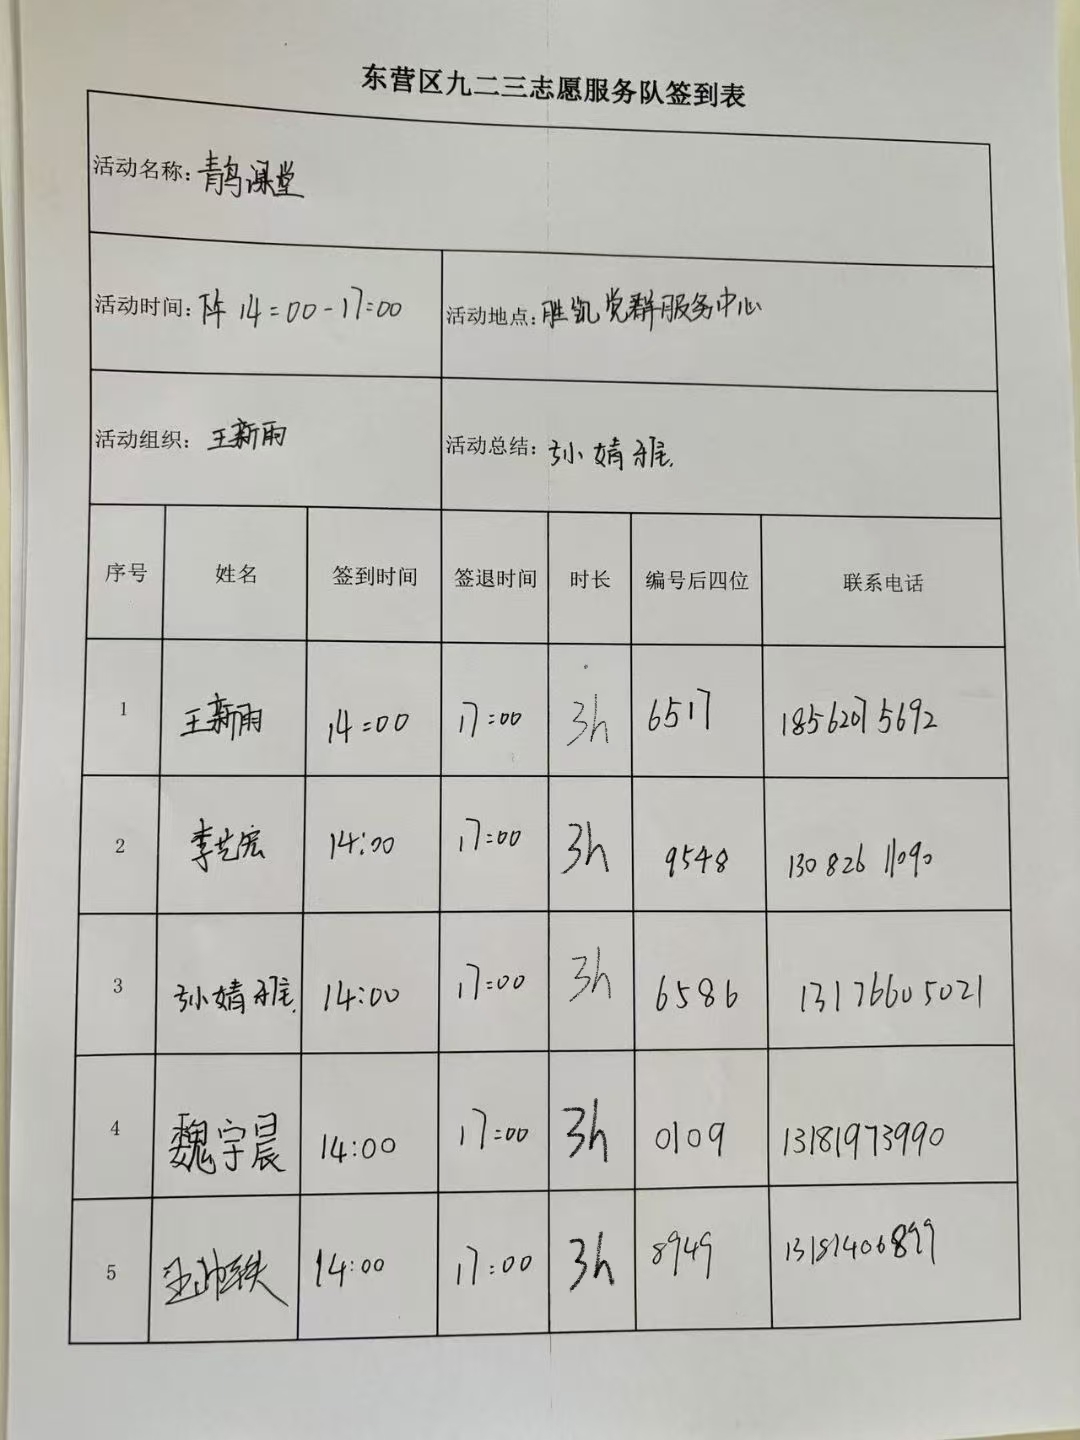 东营区九二三志愿服务队签到表
活动名称：青鸟课堂
活动时间：下午 14:00-17:00 活动地点：胜凯党群服务中心
活动组织：王新雨 活动总结：孙婧雅
序号 姓名 签到时间 签退时间 时长 编号后四位 联系电话
1 王新雨 14:00 17:00 3h 6517 18562075692
2 李艺宏 14:00 17:00 3h 9548 13082611090
3 孙婧雅 14:00 17:00 3h 6586 13176605021
4 魏宇晨 14:00 17:00 3h 0109 13181973990
5 14:00 17:00 3h 8949 13181406899